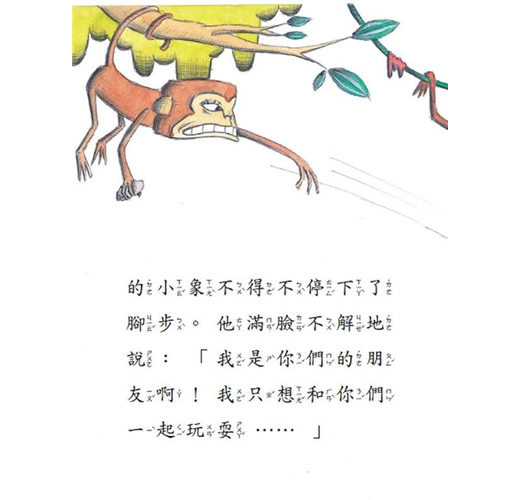 的小象不得不停下了
腳步。他滿臉不解地
說：「我是你們的朋
友啊！我只想和你們
一起玩耍……」